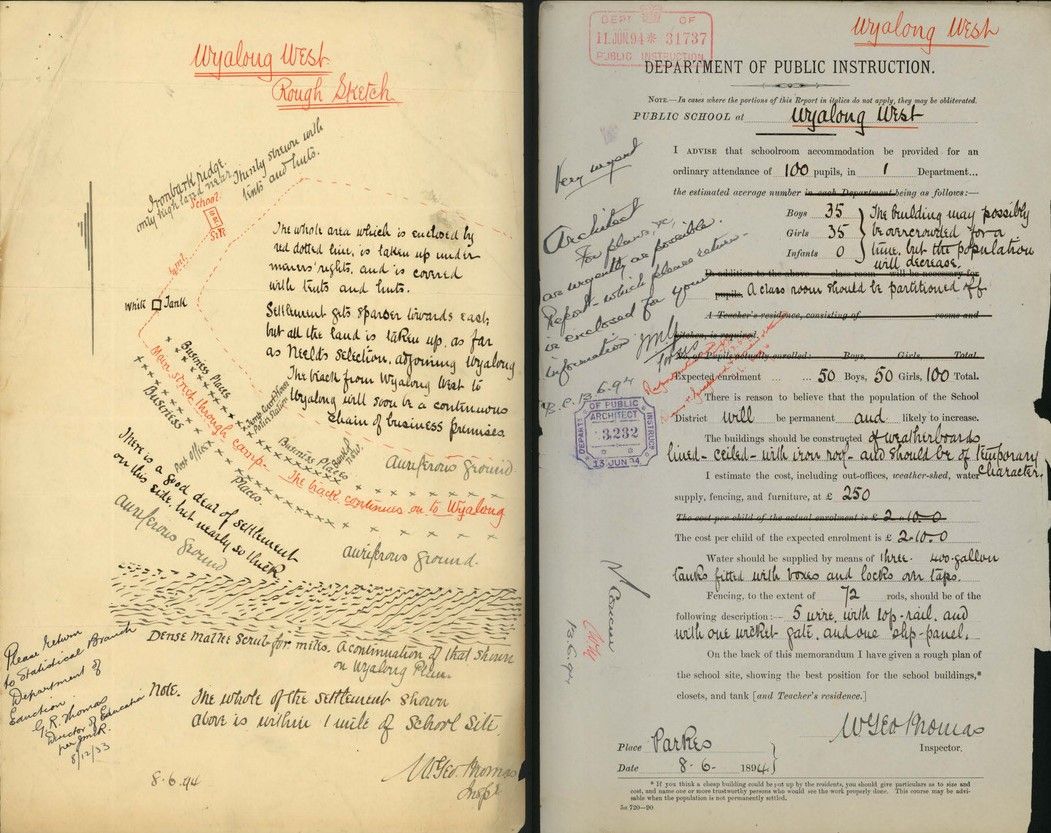 Wyalong West
Rough Sketch
Ironbark ridge.
only high land near
Thinly strewn with
tents and huts.
School
Site
The whole area which is enclosed by
red dotted line, is taken up under
miners' rights, and is covered
with tents and huts.
Settlement gets sparser towards east,
but all the land is taken up, as far
as Neeld's selection, adjoining Wyalong
The track from Wyalong West to
Wyalong will soon be a continuous
chain of business premises.
White Tank
Main street through camp.
Business Places
Business
Post office
Places.
Business Places
The track continues on to Wyalong
auriferous ground
auriferous ground.
There is a good deal of settlement
on this side, but nearly so thick
auriferous
ground
Dense mallee scrub for miles. A continuation of that shown
on Wyalong Plan.
Note. The whole of the settlement shown
above is within 1 mile of School site.
Please return
to Statistical Branch
Department of
Education
G. R. Thomas
Director of Education
8/12/33
8.6.94
W Geo Thomas
Insp r.
DEPT OF
11.JUN.94 * 31737
PUBLIC INSTRUCTION
Wyalong West
DEPARTMENT OF PUBLIC INSTRUCTION.
NOTE.—In cases where the portions of this Report in italics do not apply, they may be obliterated.
PUBLIC SCHOOL at Wyalong West
I ADVISE that schoolroom accommodation be provided for an
ordinary attendance of 100 pupils, in 1 Department...
the estimated average number in each Department being as follows:—
Boys 35
Girls 35
Infants 0
The building may possibly
be overcrowded for a
time, but the population
will decrease.
In addition to the above class room will be necessary for
pupils. A class room should be partitioned off
A Teacher's residence, consisting of rooms and
kitchen, is required.
No. of Pupils actually enrolled: Boys, Girls, Total.
Expected enrolment ... ... 50 Boys, 50 Girls, 100 Total.
There is reason to believe that the population of the School
District will be permanent and likely to increase.
The buildings should be constructed of weatherboards
lined - ceiled - with iron roof - and should be of temporary
character.
I estimate the cost, including out-offices, weather-shed, water
supply, fencing, and furniture, at £ 250
The cost per child of the actual enrolment is £ 2-10-0
The cost per child of the expected enrolment is £ 2-10-0
Water should be supplied by means of three 400-gallon
tanks fitted with boxes and locks on taps.
Fencing, to the extent of 72 rods, should be of the
following description:— 5 wire, with top-rail, and
with one wicket-gate, and one slip-panel.
On the back of this memorandum I have given a rough plan of
the school site, showing the best position for the school buildings,*
closets, and tank [and Teacher's residence.]
W Geo Thomas
Inspector.
Place Parkes
Date 8-6- 1894.
* If you think a cheap building could be put up by the residents, you should give particulars as to size and
cost, and name one or more trustworthy persons who would see the work properly done. This course may be advi-
sable when the population is not permanently settled.
5a 720—90
Very urgent
Architect
For plans, &c,
as urgently as possible.
Report - which please return -
is enclosed for your
information
B.C. 13.6.94
DEPARTT OF PUBLIC INSTRUCT
ARCHITECT
3232
13 JUN 94
13.6.94